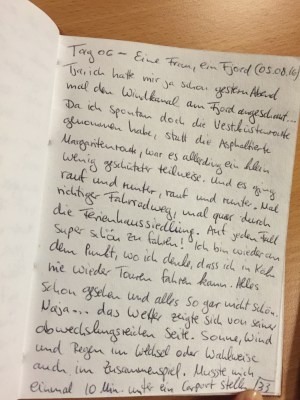 Tag 06 - Eine Frau, ein Fjord (05.08.16)
Tja, ich hatte mir ja schon gestern Abend
mal den Windkanal am Fjord angeschaut...
Da ich spontan doch die Westküstenroute
genommen habe, statt die Asphaltierte
Margaritenroute, war es allerdings ein klein
wenig geschützter teilweise. Und es ging
rauf und runter, rauf und runter. Mal
richtiger Fahrradweg, mal quer durch
die Ferienhaussiedlung. Auf jeden Fall
super schön zu fahren! Ich bin wieder an
dem Punkt, wo ich denke, dass ich in
nie wieder Touren fahren kann. Alles
schon gesehen und alles so gar nicht schön.
Naja... das Wetter zeigte sich von seiner
abwechslungsreichen Seite. Sonne, Wind
und Regen im Wechsel oder Wahlweise
auch im Zusammenspiel. Musste mich
einmal 10 Min. unter ein Carport stellen
33